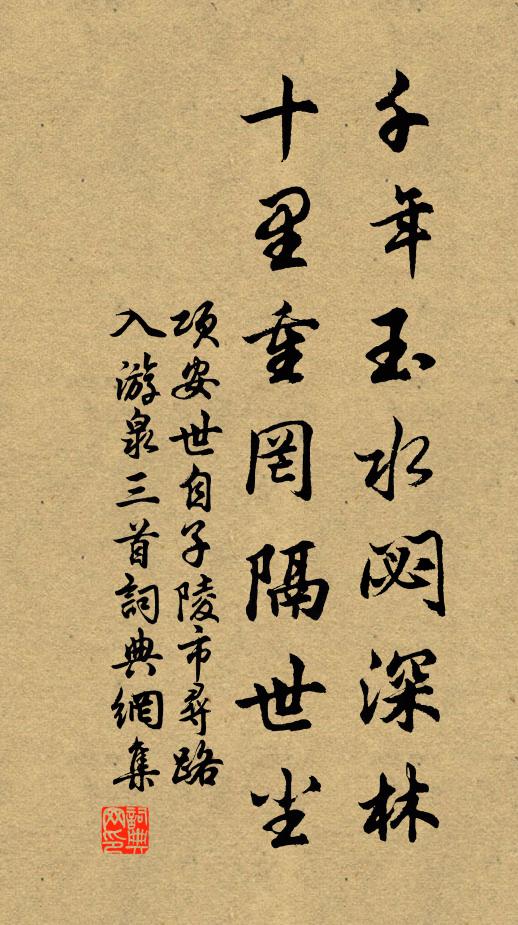 千年玉水閟深林
十里重罔隔世尘
项安世自子陵市尋路
入游泉三首詞典網集
詞典网印